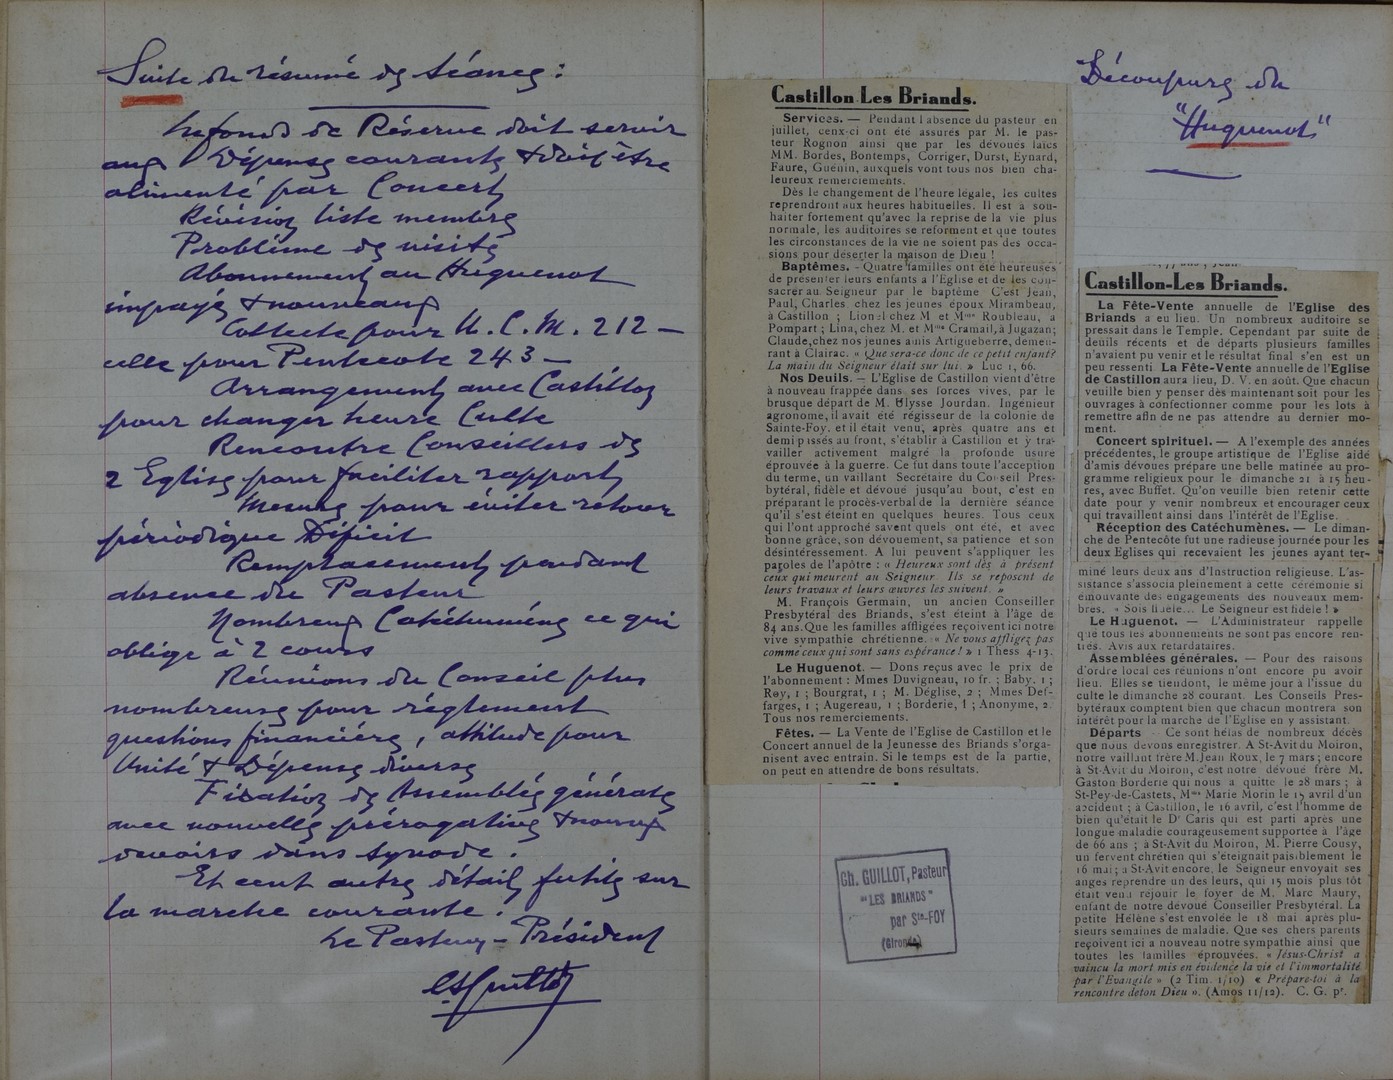 Suite du résumé des séances :
Les fonds de Réserve doit servir
aux Dépenses courantes & doit être
alimenté par Concert
Révision liste membres
Problème des visites
Abonnements au Huguenot
impayés & nouveaux
Collecte pour U. C. M. 212 –
celle pour Pentecote 243 –
Arrangement avec Castillon
pour changer heure Culte
Rencontre Conseillers des
2 Eglises pour faciliter rapports
Mesures pour éviter retour
périodique Déficit
Remplacements pendant
absence du Pasteur
Nombreux Catéchumènes ce qui
oblige à 2 cours
Réunions du Conseil plus
nombreuses pour règlement
questions financières, attitude pour
Unité & Dépenses diverses
Fixation des Assemblées générales
avec nouvelles prérogatives & nouveaux
devoirs dans synode.
Et cent autres détails futiles sur
la marche courante.
Le Pasteur – Président
Ch Guillot
Castillon-Les Briands.
Services. — Pendant l'absence du pasteur en
juillet, ceux-ci ont été assurés par M. le pas-
teur Rognon ainsi que par les dévoués laïcs
MM. Bordes, Bontemps, Corriger, Durst, Eynard,
Faure, Guénin, auxquels vont tous nos bien cha-
leureux remerciements.
Dès le changement de l'heure légale, les cultes
reprendront aux heures habituelles. Il est à sou-
haiter fortement qu'avec la reprise de la vie plus
normale, les auditoires se reforment et que toutes
les circonstances de la vie ne soient pas des occa-
sions pour déserter la maison de Dieu !
Baptêmes. - Quatre familles ont été heureuses
de présenter leurs enfants à l'Eglise et de les con-
sacrer au Seigneur par le baptême C'est Jean,
Paul, Charles chez les jeunes époux Mirambeau,
à Castillon ; Lionel chez M et Mme Roubleau, à
Pompart ; Lina, chez M. et Mme Cramail, à Jugazan;
Claude, chez nos jeunes amis Artigueberre, demeu-
rant à Clairac. « Que sera-ce donc de ce petit enfant?
La main du Seigneur était sur lui. » Luc 1, 66.
Nos Deuils. — L'Eglise de Castillon vient d'être
à nouveau frappée dans ses forces vives, par le
brusque départ de M. Ulysse Jourdan. Ingénieur
agronome, il avait été régisseur de la colonie de
Sainte-Foy, et il était venu, après quatre ans et
demi passés au front, s'établir à Castillon et y tra-
vailler activement malgré la profonde usure
éprouvée à la guerre. Ce fut dans toute l'acception
du terme, un vaillant Secrétaire du Conseil Pres-
bytéral, fidèle et dévoué jusqu'au bout, c'est en
préparant le procès-verbal de la dernière séance
qu'il s'est éteint en quelques heures. Tous ceux
qui l'ont approché savent quels ont été, et avec
bonne grâce, son dévouement, sa patience et son
désintéressement. A lui peuvent s'appliquer les
paroles de l'apôtre : « Heureux sont dès à présent
ceux qui meurent au Seigneur Ils se reposent de
leurs travaux et leurs œuvres les suivent. »
M. François Germain, un ancien Conseiller
Presbytéral des Briands, s'est éteint à l'âge de
84 ans. Que les familles affligées reçoivent ici notre
vive sympathie chrétienne. « Ne vous affligez pas
comme ceux qui sont sans espérance ! » 1 Thess 4-13.
Le Huguenot. — Dons reçus avec le prix de
l'abonnement : Mmes Duvigneau, 10 fr. ; Baby, 1 ;
Rey, 1 ; Bourgrat, 1 ; M. Déglise, 2 ; Mmes Def-
farges, 1 ; Augereau, 1 ; Borderie, 1 ; Anonyme, 2.
Tous nos remerciements.
Fêtes. — La Vente de l'Eglise de Castillon et le
Concert annuel de la Jeunesse des Briands s'orga-
nisent avec entrain. Si le temps est de la partie,
on peut en attendre de bons résultats.
Ch. GUILLOT, Pasteur
"LES BRIANDS"
par Ste-FOY
(Gironde)
Découpures du
"Huguenot"
Castillon-Les Briands.
La Fête-Vente annuelle de l'Eglise des
Briands a eu lieu. Un nombreux auditoire se
pressait dans le Temple. Cependant par suite de
deuils récents et de départs plusieurs familles
n'avaient pu venir et le résultat final s'en est un
peu ressenti La Fête-Vente annuelle de l'Eglise
de Castillon aura lieu, D. V. en août. Que chacun
veuille bien y penser dès maintenant soit pour les
ouvrages à confectionner comme pour les lots à
remettre afin de ne pas attendre au dernier mo-
ment.
Concert spirituel. — A l'exemple des années
précédentes, le groupe artistique de l'Eglise aidé
d'amis dévoués prépare une belle matinée au pro-
gramme religieux pour le dimanche 21 à 15 heu-
res, avec Buffet. Qu'on veuille bien retenir cette
date pour y venir nombreux et encourager ceux
qui travaillent ainsi dans l'intérêt de l'Eglise.
Réception des Catéchumènes. — Le diman-
che de Pentecôte fut une radieuse journée pour les
deux Eglises qui recevaient les jeunes ayant ter-
miné leurs deux ans d'Instruction religieuse. L'as-
sistance s'associa pleinement à cette cérémonie si
émouvante des engagements des nouveaux mem-
bres. « Sois fidèle... Le Seigneur est fidèle ! »
Le Huguenot. — L'Administrateur rappelle
que tous les abonnements ne sont pas encore ren-
trés. Avis aux retardataires.
Assemblées générales. — Pour des raisons
d'ordre local ces réunions n'ont encore pu avoir
lieu. Elles se tiendont, le même jour à l'issue du
culte le dimanche 28 courant. Les Conseils Pres-
bytéraux comptent bien que chacun montrera son
intérêt pour la marche de l'Eglise en y assistant.
Départs — Ce sont hélas de nombreux décès
que nous devons enregistrer. A St-Avit du Moiron,
notre vaillant frère M. Jean Roux, le 7 mars ; encore
à St-Avit du Moiron, c'est notre dévoué frère M.
Gaston Borderie qui nous a quitté le 28 mars ; à
St-Pey-de-Castets, Mme Marie Morin le 15 avril d'un
accident ; à Castillon, le 16 avril, c'est l'homme de
bien qu'était le Dr Caris qui est parti après une
longue maladie courageusement supportée à l'âge
de 66 ans ; à St-Avit du Moiron, M. Pierre Cousy,
un fervent chrétien qui s'éteignait paisiblement le
16 mai ; à St-Avit encore, le Seigneur envoyait ses
anges reprendre un des leurs, qui 15 mois plus tôt
était venu réjouir le foyer de M. Marc Maury,
enfant de notre dévoué Conseiller Presbytéral. La
petite Hélène s'est envolée le 18 mai après plu-
sieurs semaines de maladie. Que ses chers parents
reçoivent ici à nouveau notre sympathie ainsi que
toutes les familles éprouvées. « Jésus-Christ a
vaincu la mort mis en évidence la vie et l'immortalité
par l'Evangile » (2 Tim. 1/10) « Prépare-toi à la
rencontre deton Dieu ». (Amos 11/12). C. G. pr.